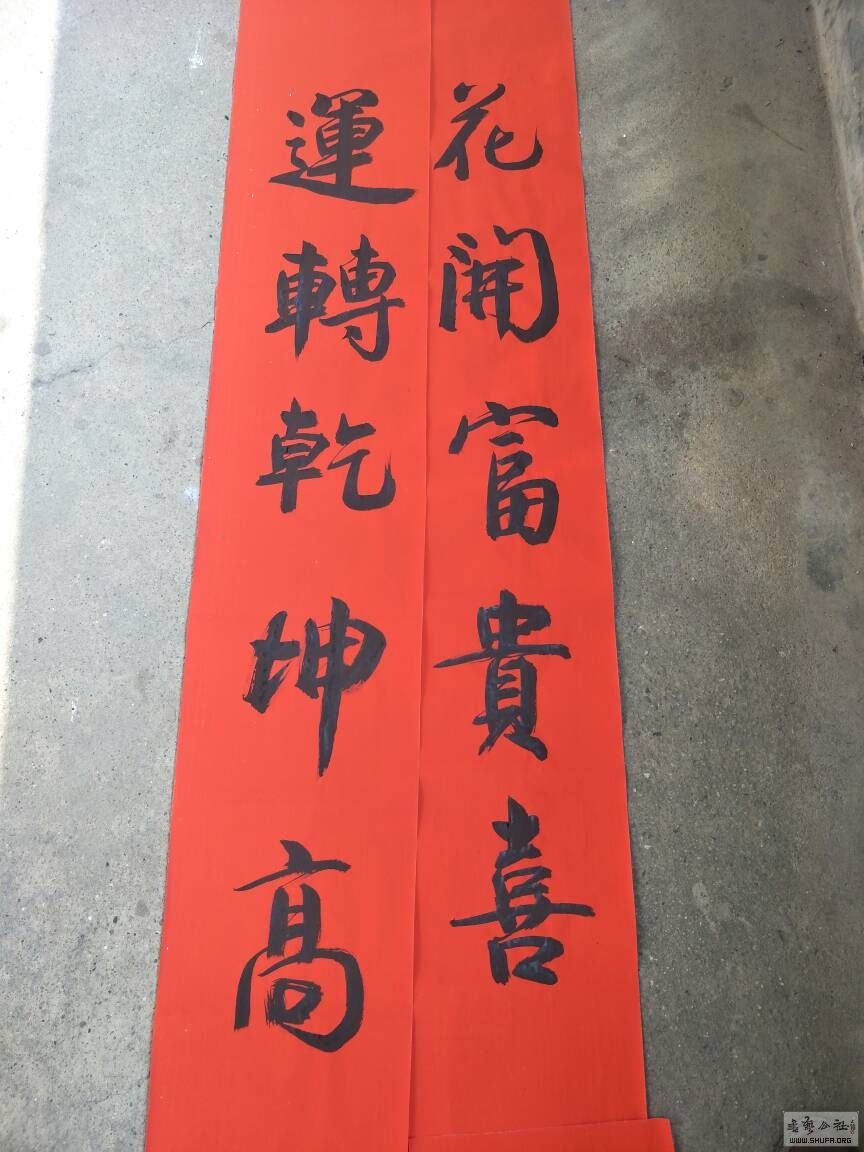 花開富貴喜
運轉乾坤高
书艺公社
WWW.SHUFA.ORG